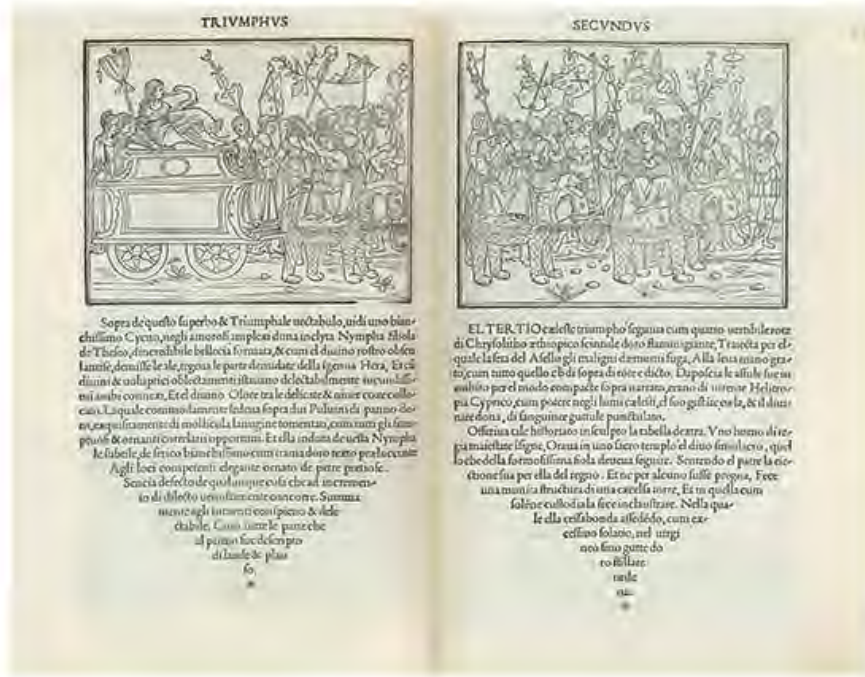 TRIVMPHVS
Sopra de questo superbo & Triumphale uectabulo, uidi uno bian-
chissimo Cycno, negli amorosi amplexi duna inclyta Nympha filiola
de Theseo, dincredibile bellecia formata, & cum el diuino rostro obscu
lantise, demisse le ale, tegeua le parte denudate della Hera, Et cũ
diuini & uoluptici oblectamenti istauano delectabilmente iucundissi-
mi ambi connexi, Et el diuino Olore tra le delicate & niuee coxe collo-
cato. Laquale commodamente sedeua sopra dui Puluini di panno do-
ro, exquisitamente di mollicula lanugine tomentati, cum tutti gli sum-
ptuosi & ornanti correlarii opportuni. Et ella induta de uesta Nympha
le subtile, de serico bianchissimo cum trama doro texto præluccente
Agli loci competenti elegante ornato de petre pretiose.
Sencia defecto de qualunque cosa che ad incremen-
to di dilecto uenustamente concorre. Summa
mente agli intuenti conspicuo & dele
ctabile. Cum tutte le parte che
al primo fue descripto
di laude & plau
so.
*
SECVNDVS
EL TERTIO cæleste triumpho seguiua cum quatro uertibile rote
di Chrysolitho æthiopico scintule doro flammigiante, Traiecta per el-
quale la seta del Asello gli maligni dæmonii fuga, Alla leua mano gra-
to, cum tutto quello ch̃ di sopra di rote e dicto. Daposcia le assule sue in
ambito per el modo compacte sopra narrato, erano di uirente Helitro-
pia Cyprico, cum potere negli lumi cælesti, el suo gestãte cœla, & il diui-
nare dona, di sanguinee guttule punctulato.
Offeriua tale historiato insculpto la tabella dextra. Vno homo di re-
gia maiestate isigne, Oraua in uno sacro templo el diuo simulacro, quel
lo che della formosissima fiola deueua seguire. Sentendo el patre la eie-
ctione sua per ella del regno. Et ne per alcuno fusse pregna, Fece
una munita structura di una excelsa torre, Et in quella cum
solẽne custodia la fece inclaustrare. Nella qua-
le ella cessabonda assedẽdo, cum ex-
cessiuo solatio, nel uirgi
neo sino gutte do
ro stillare
uede
ua.
*